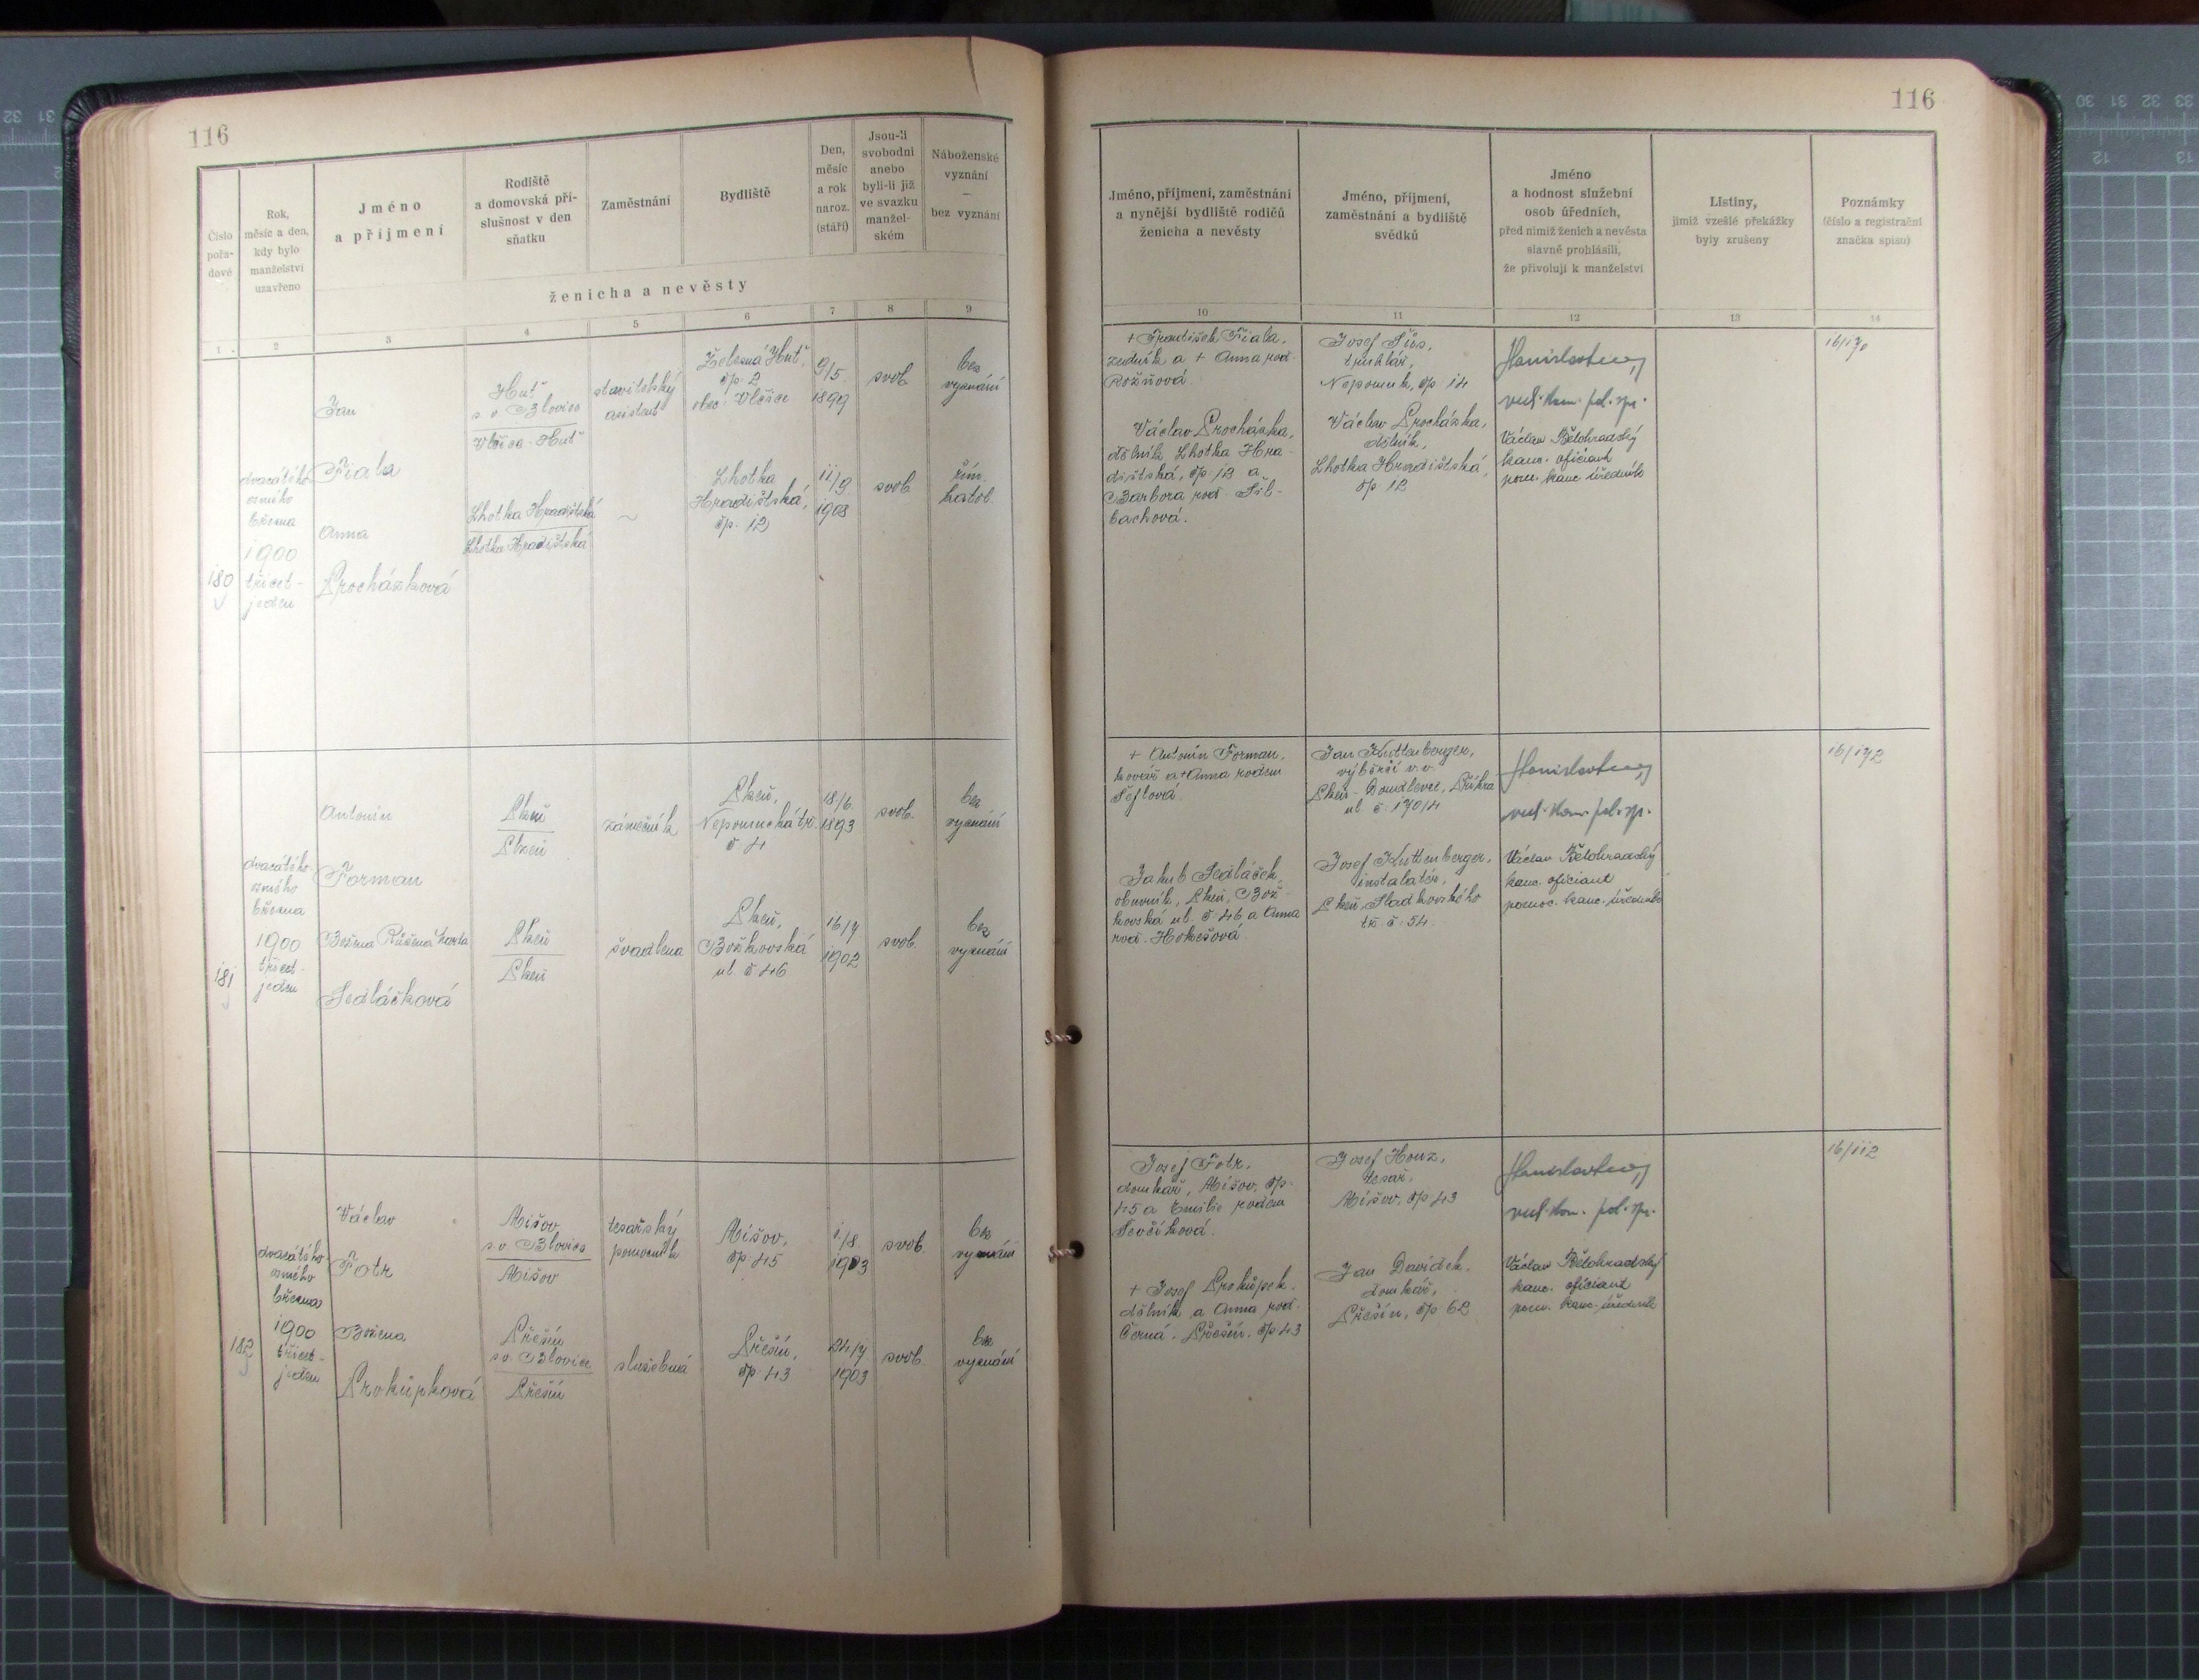 116
Číslo
pořa-
dové
Rok,
měsíc a den,
kdy bylo
manželství
uzavřeno
Jméno
a příjmení
Rodiště
a domovská pří-
slušnost v den
sňatku
Zaměstnání
Bydliště
Den,
měsíc
a rok
naroz.
(stáří)
Jsou-li
svobodni
anebo
byli-li již
ve svazku
manžel-
ském
Náboženské
vyznání
—
bez vyznání
ženicha a nevěsty
1
2
3
4
5
6
7
8
9
180
dvacátého
osmého
března
1900
třicet-
jeden
Jan
Fiala
Huť
s. o. Blovice
Vlčice-Huť
stavitelský
asistent
Železná Huť,
čp. 2
obec: Vlčice
9/5.
1899
svob.
bez
vyznání
Anna
Procházková
Lhotka Hradištská
Lhotka Hradištská
~
Lhotka
Hradištská,
čp. 12
11/9.
1908
svob.
řím.
katol.
181
dvacátého-
osmého
března
1900
třicet-
jeden
Antonín
Forman
Plzeň
Plzeň
zámečník
Plzeň,
Nepomucká tř.
č 4
18/6.
1893
svob.
bez
vyznání
Božena Růžena
Sedláčková
Plzeň
Plzeň
švadlena
Plzeň,
Božkovská
ul. č 46
16/7
1902
svob.
bez
vyznání
182
dvacátého-
osmého
března
1900
třicet-
jeden
Václav
Fotr
Míšov
s.o. Blovice
Míšov
tesařský
pomocník
Míšov,
čp. 45
1./8
1903
svob.
bez
vyznání
Božena
Prokůpková
Přešín
s.o. Blovice
Přešín
služebná
Přešín,
čp. 43
24/7
1903
svob.
bez
vyznání
116
Jméno, příjmení, zaměstnání
a nynější bydliště rodičů
ženicha a nevěsty
Jméno, příjmení,
zaměstnání a bydliště
svědků
Jméno
a hodnost služební
osob úředních,
před nimiž ženich a nevěsta
slavně prohlásili,
že přivolují k manželství
Listiny,
jimiž vzešlé překážky
byly zrušeny
Poznámky
(číslo a registrační
značka spisu)
10
11
12
13
14
+ František Fiala,
zedník a + Anna rod.
Rožňová.
Václav Procházka,
dělník Lhotka Hra-
dištská, čp. 12 a
Barbora rod. Šil-
bachová.
Josef Šůs,
truhlář,
Nepomuk, čp. 14
Václav Procházka,
dělník,
Lhotka Hradištská,
čp. 12
vrch. kom. pol. spr.
Václav Bělohradský
kanc. oficiant
pom. kanc. úředník
16/170
+ Antonín Forman,
kovář a + Anna rodem
Šeflová.
Jakub Sedláček,
obuvník, Plzeň, Bož-
kovská ul. č. 46 a Anna
rod. Hokešová.
Jan Kuttenberger,
výběrčí v.v.
Plzeň-Doudlevce, Příkrá
ul. č. 170/4
Josef Kuttenberger,
instalatér,
Plzeň, Sladkovského
tř. č. 54
vrch. kom. pol. sp.
Václav Bělohradský
kanc. oficiant
pomoc. kanc. úředník
16/172
Josef Fotr,
domkář, Míšov, čp.
45 a Emilie rodem
Ševčíková.
+ Josef Prokůpek,
dělník a Anna rod.
Černá. Přešín, čp. 43
Josef Houz,
tesař,
Míšov, čp. 43
Jan Davídek,
domkář,
Přešín, čp. 62
vrch. kom. pol. spr.
Václav Bělohradský
kanc. oficiant
pom. kanc. úředník
16/112